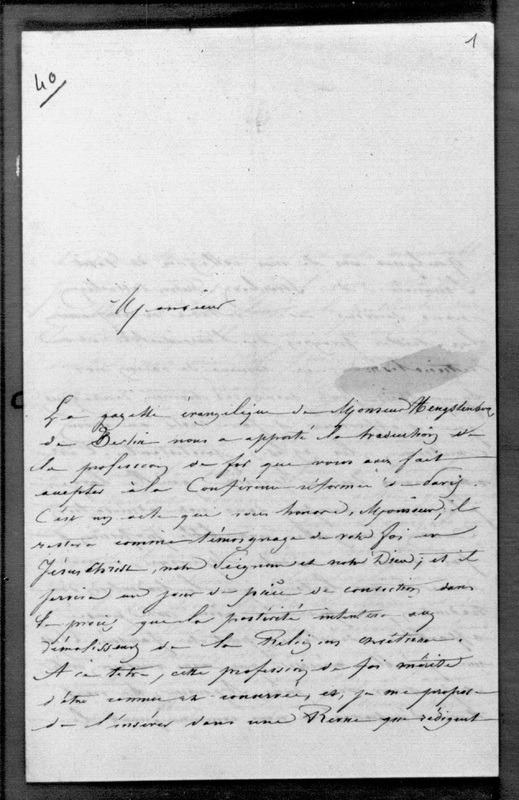 40
1
Monsieur
La gazette évangelique de Monsieur Hengstenberg
de Berlin nous a apporté la traduction de
la profession de foi que vous avez fait
accepter à la Conférence réformée de Paris
C'est un acte que vous honore, Monsieur, il
restera comme témoignage de votre foi en
Jésus Christ, notre Seigneur et notre Dieu; et il
servira un jour de pièce de conviction dans
le procès que la postérité intentera aux
démolisseurs de la Religion chrétienne.
A ce titre, cette profession de foi mérite
d'être connue et conservée, et, je me propose
de l'insérer dans une Revue que rédigent